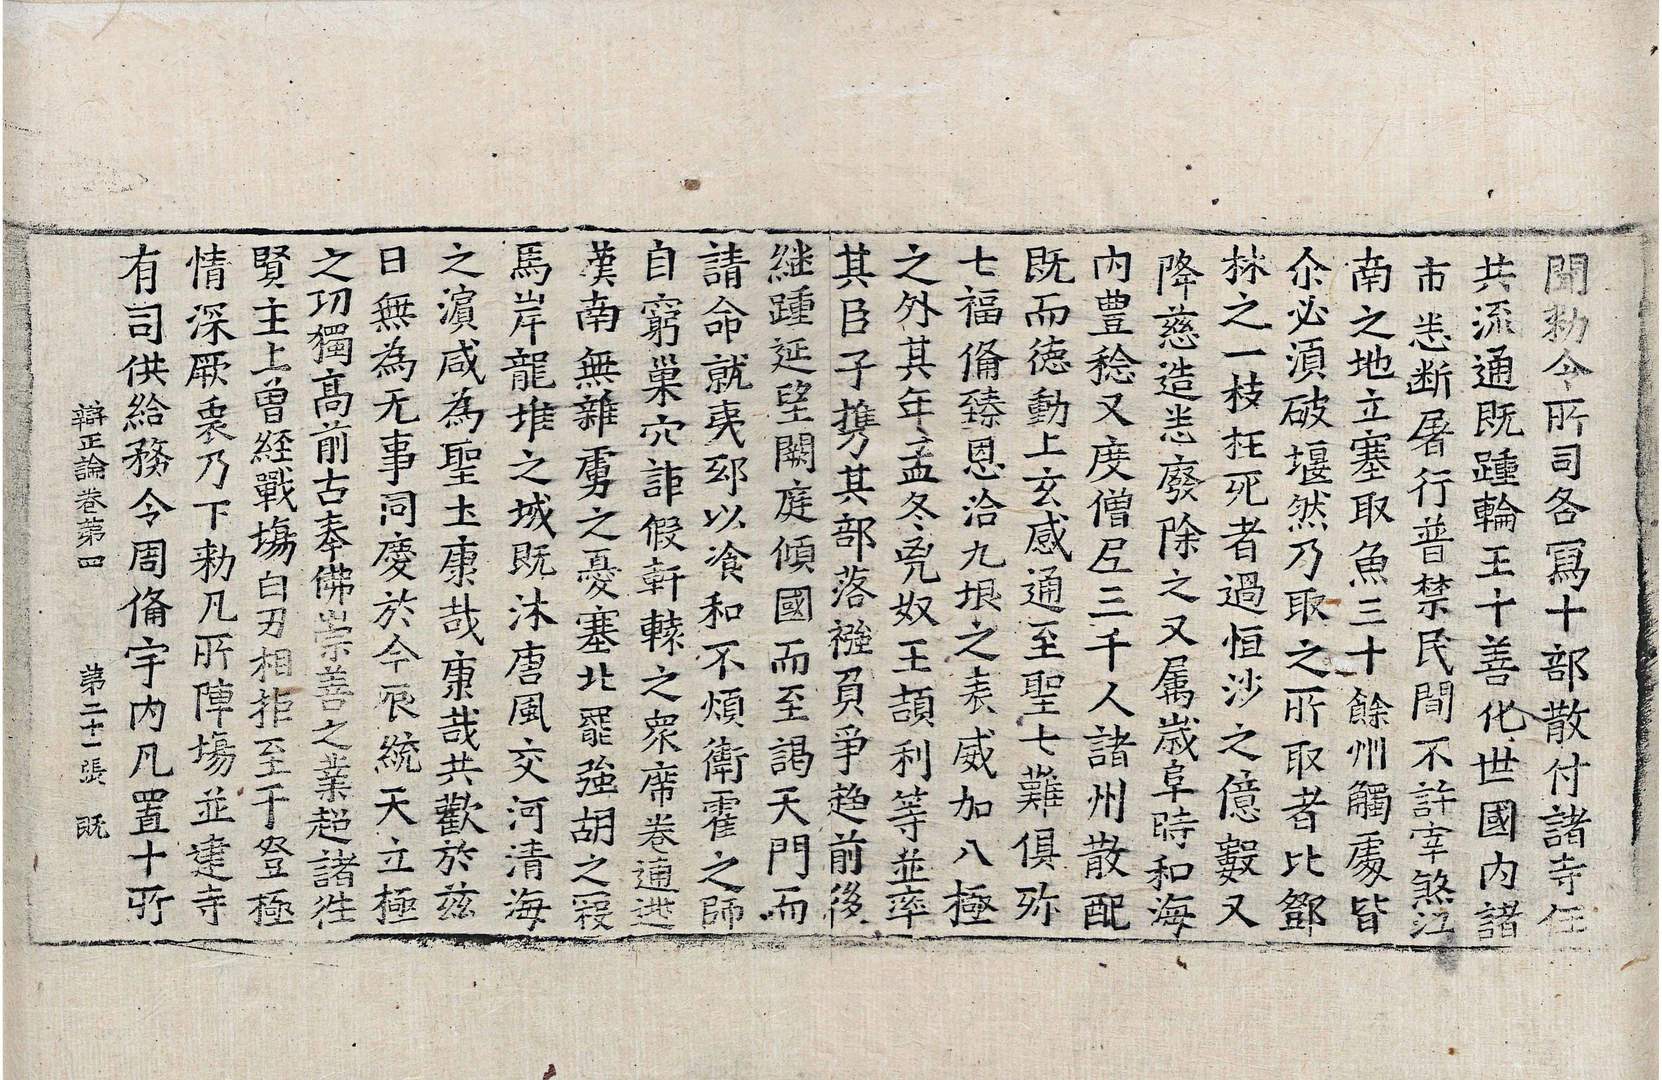 聞勑令所司各寫十部散付諸寺任
其流通既踵輪王十善化世國内諸
市悉断屠行普禁民間不許宰煞江
南之地立塞取魚三十餘州觸處皆
尒必湏破堰然乃取之所取者比鄧
林之一枝抂死者過恒沙之億數又
降慈造悉廢除之又属歳阜時和海
内豊稔又度僧尼三千人諸州散配
既而徳動上玄感通至聖七難俱弥
七福俻臻恩洽九垠之表威加八極
之外其年孟冬兇奴王頡利等並率
其臣子携其部落襁負爭趍前後
継踵延望闕庭傾國而至謁天門而
請命就夷邸以飡和不煩衛霍之師
自窮巢穴詎假軒轅之衆席卷逋逃
漢南無雜虜之憂塞北罷強胡之寇
馬岸龍堆之城既沐唐風交河清海
之濵咸為聖土康哉康哉共歡於兹
日無為无事同慶於今辰統天立極
之功獨髙前古奉佛崇善之業超諸徃
賢主上曽経戰塲白刃相拒至于登極
情深厥衷乃下勑凡所陣塲並建寺
有司供給務令周俻宇内凡置十所
辯正論巻第四 第二十一張 既